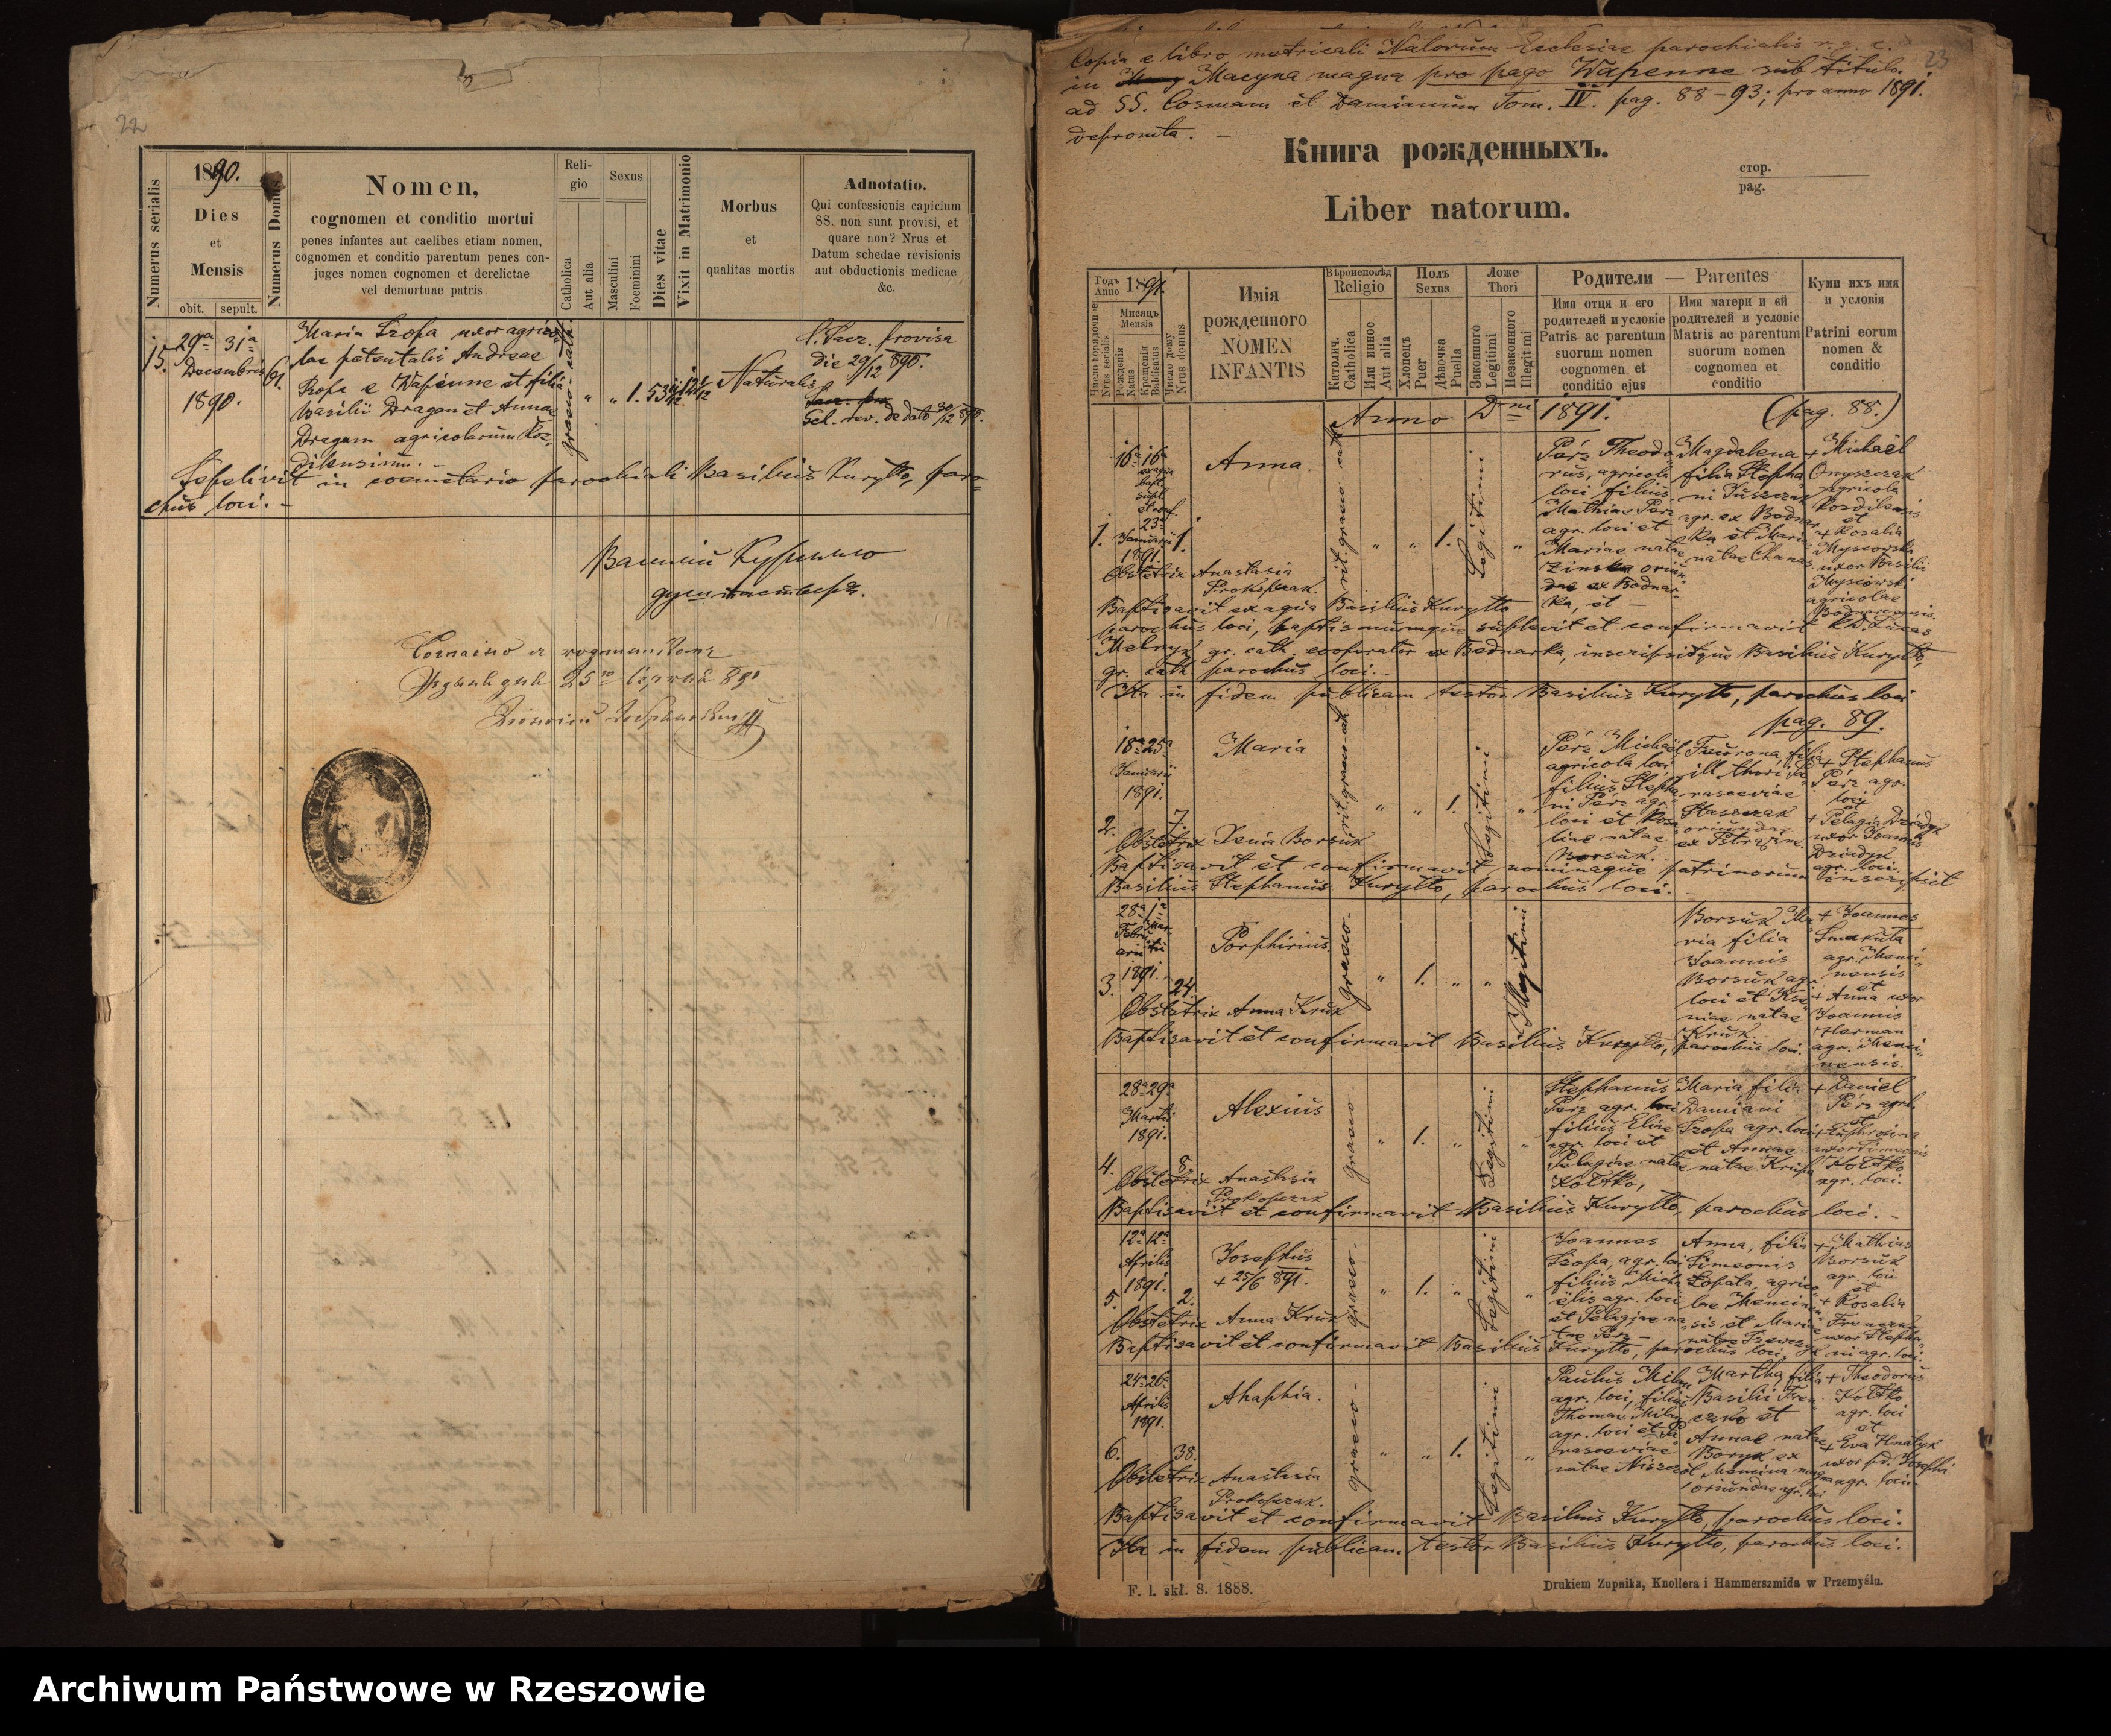 22
Numerus serialis
1890.
Dies
et
Mensis
obit. sepult.
Numerus Domus
Nomen,
cognomen et conditio mortui
penes infantes aut caelibes etiam nomen,
cognomen et conditio parentum penes con-
juges nomen cognomen et derelictae
vel demortuae patris
Reli-
gio
Catholica
Aut alia
Sexus
Masculini
Foeminini
Dies vitae
Vixit in Matrimonio
Morbus
et
qualitas mortis
Adnotatio.
Qui confessionis capicium
SS. non sunt provisi, et
quare non? Nrus et
Datum schedae revisionis
aut obductionis medicae
&c.
15.
29a 31a
Decembris
1890.
61.
Maria Szopa uxor agrico-
lae Andreae
Szopa e Wapienne et filia
Wasilii Dragan et Annae
Dragan agricolarum Roz-
dilensium. -
graeco-cath.
" " 1.
Naturalis
S. Sacr. provisa
die 29/12 890.
Sch. rev. de dato 30/12 890.
Sepelivit in coemetario parochiali Basilius Kuryłło, paro-
chus loci. -
25
23
Copia e libro metricali Natorum Ecclesiae parochialis r. g. c.
in Macyna magna pro pago Wapenne sub titulo
ad SS. Cosmam et Damianum Tom. IV. pag. 88-93; pro anno 1891.
depromta. -
Книга рожденныхъ.
стор.
pag.
Liber natorum.
Годъ
Anno 1891.
Число порядочне
Nrus serialis
Мисяцъ
Mensis
Рожденія
Natus
Крещенія
Babtisatus
Число дому
Nrus domus
Имія
рожденного
NOMEN
INFANTIS
Вѣроисповѣд
Religio
Католич.
Catholica
Или инное
Aut alia
Полъ
Sexus
Хлопецъ
Puer
Дѣвочка
Puella
Ложе
Thori
Законного
Legitimi
Незаконного
Illegitimi
Родители — Parentes
Имя отця и его
родителей и условіе
Patris ac parentum
suorum nomen
cognomen et
conditio ejus
Имя матери и ей
родителей и условіе
Matris ac parentum
suorum nomen
cognomen et
conditio
Куми ихъ имя
и условія
Patrini eorum
nomen &
conditio
Anno Dni 1891. (pag. 88.)
1.
16a 16a
23a
Januarii
1891.
1.
Anna.
rit. graeco-cath.
" " 1.
Legitimi
"
Perz Theodo-
rus, agricola
loci filius
Mathiae Perz
agr. loci et
Mariae natae
ex Bodnar-
ka, et -
Magdalena
filia Stepha-
ni Juszczak
agr. ex Bodnar-
ka et Mariae
natae Chanas
+ Michaël
Onyszczak
agricola
Rozdilensis
et
+ Rosalia
Mysiowska
uxor Basilii
Mysiowski
agricolae
Bodnarcensis.
Obstetrix Anastasia
Prokopczak.
Baptisavit ex aqua Basilius Kuryłło
parochus loci, baptismumque suplevit et confirmavit R.D. Lucas
Melnyk gr. cath. cooperator ex Bednarka, inscripsitque Basilius Kuryłło,
gr. cath. parochus loci. -
Ita in fidem publicam testor Basilius Kuryłło, parochus loci
pag. 89.
2.
18a 25a
Januarii
1891.
7.
Maria
rit. graeco-cath.
" " 1.
Legitimi
"
Perz Michaël
agricola loci
filius Stepha-
ni Perz agr.
loci et Rosa-
liae natae
Borsuk.
Feurona, filia
ill. thori Pa-
rasceviae
Staszczak
oriundae
+ Stephanus
Perz agr.
loci
et
+ Pelagia Dziadyk
uxor Joannis
Dziadyk
agr. loci
Obstetrix Xenia Borsuk
Baptisavit et confirmavit, nominaque patrinorum inscripsit
Basilius Stephanus Kuryłło, parochus loci. -
3.
28a 1a
Febru- Mar-
arii tii
1891.
24.
Porphirius
graeco-
" 1. " "
Illegitimi
Borsuk Ma-
ria filia
Joannis
Borsuk agr.
loci et Xe-
niae natae
Kruk.
+ Joannes
Smakuła
agr. Menci-
nensis
et
+ Anna uxor
Joannis
Herman
agr. Menci-
nensis.
Obstetrix Anna Kruk
Baptisavit et confirmavit Basilius Kuryłło, parochus loci.
4.
28a 29a
Martii
1891.
8.
Alexius
graeco-
" 1. "
Legitimi
"
Stephanus
Perz agr. loci
filius Eliae
agr. loci et
Pelagiae natae
Kołtko,
Maria filia
Damiani
Szopa agr. loci
et Annae
natae Krupa
+ Daniel
Perz agr.
et
+ Euphrosina
uxor Simeonis
Kołtko
agr. loci.
Obstetrix Anastasia
Prokopczak
Baptisavit et confirmavit Basilius Kuryłło, parochus loci. -
5.
12a 12a
Aprilis
1891.
2.
Josephus
+ 25/6 891.
graeco-
" 1. "
Legitimi
"
Joannes
Szopa, agr. loci
filius Micha-
ëlis agr. loci
et Pelagiae na-
tae Perz -
Anna, filia
Simeonis
Łopata, agrico-
lae Mencinen-
sis et Mariae
+ Mathias
Borsuk
agr. loci
et
+ Rosalia
Frenczko
uxor Stepha-
ni agr. loci.
Obstetrix Anna Kruk
Baptisavit et confirmavit Basilius Kuryłło, parochus loci,
6.
24a 26a
Aprilis
1891.
38.
Ahaphia.
graeco-
" " 1.
Legitimi
"
Paulus Milan
agr. loci, filius
Thomae Milan
agr. loci et Pa-
rasceviae
natae
Martha, filia
Basilii Fren-
czko et
Annae natae
Boryk ex
Mencina magna
oriundae agr. loci
+ Theodorus
Kołtko
agr. loci
et
+ Eva Hnatyk
uxor Josephi
agr. loci.
Obstetrix Anastasia
Prokopczak.
Baptisavit et confirmavit Basilius Kuryłło, parochus loci.
Ita in fidem publicam testor Basilius Kuryłło, parochus loci.
F. l. skł. 8. 1888.
Drukiem Zupnika, Knollera i Hammerszmida w Przemyślu.
Archiwum Państwowe w Rzeszowie